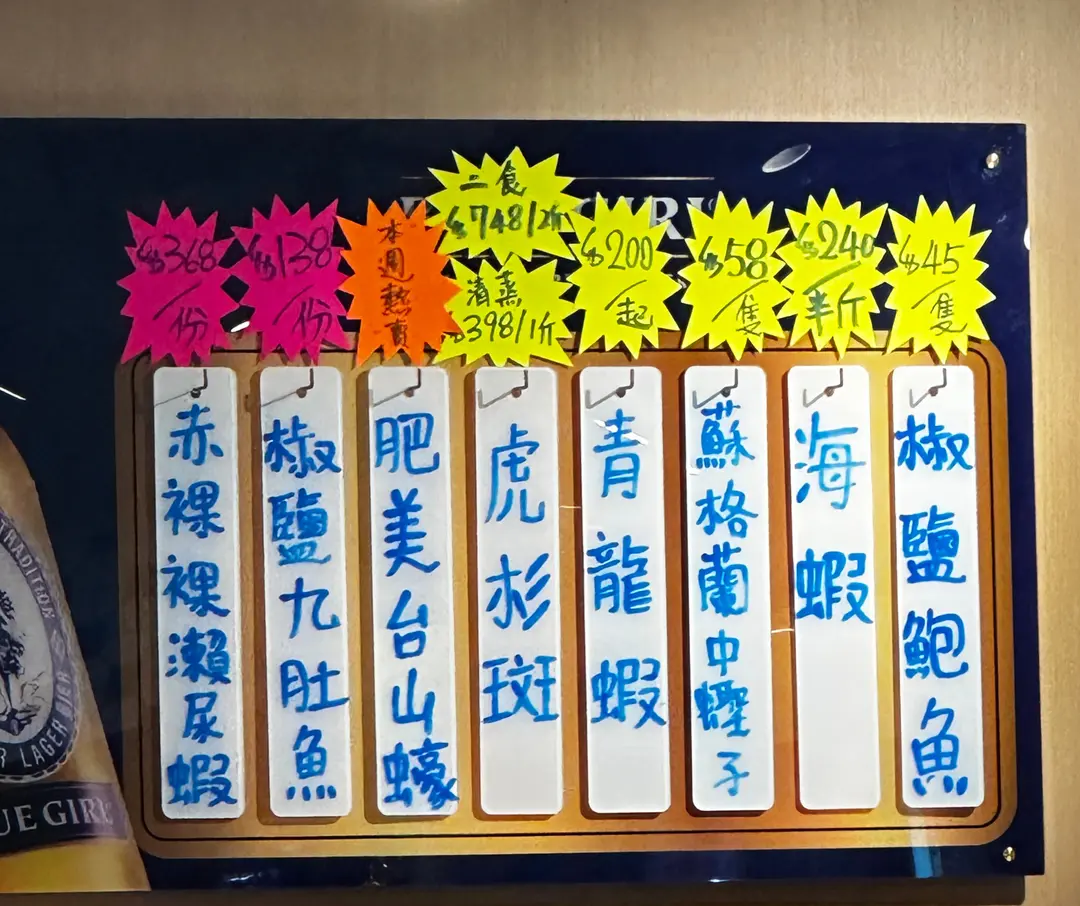 $368
/份
赤裸裸瀨尿蝦
$138
/份
椒鹽九肚魚
本週熱賣
肥美台山蠔
二食
$748/2斤
清蒸
$398/1斤
虎杉斑
$200
/起
青龍蝦
$58
/隻
蘇格蘭中蟶子
$240
/半斤
海蝦
$45
/隻
椒鹽鮑魚
TRADITION
LAGER BIER
UE GIRL